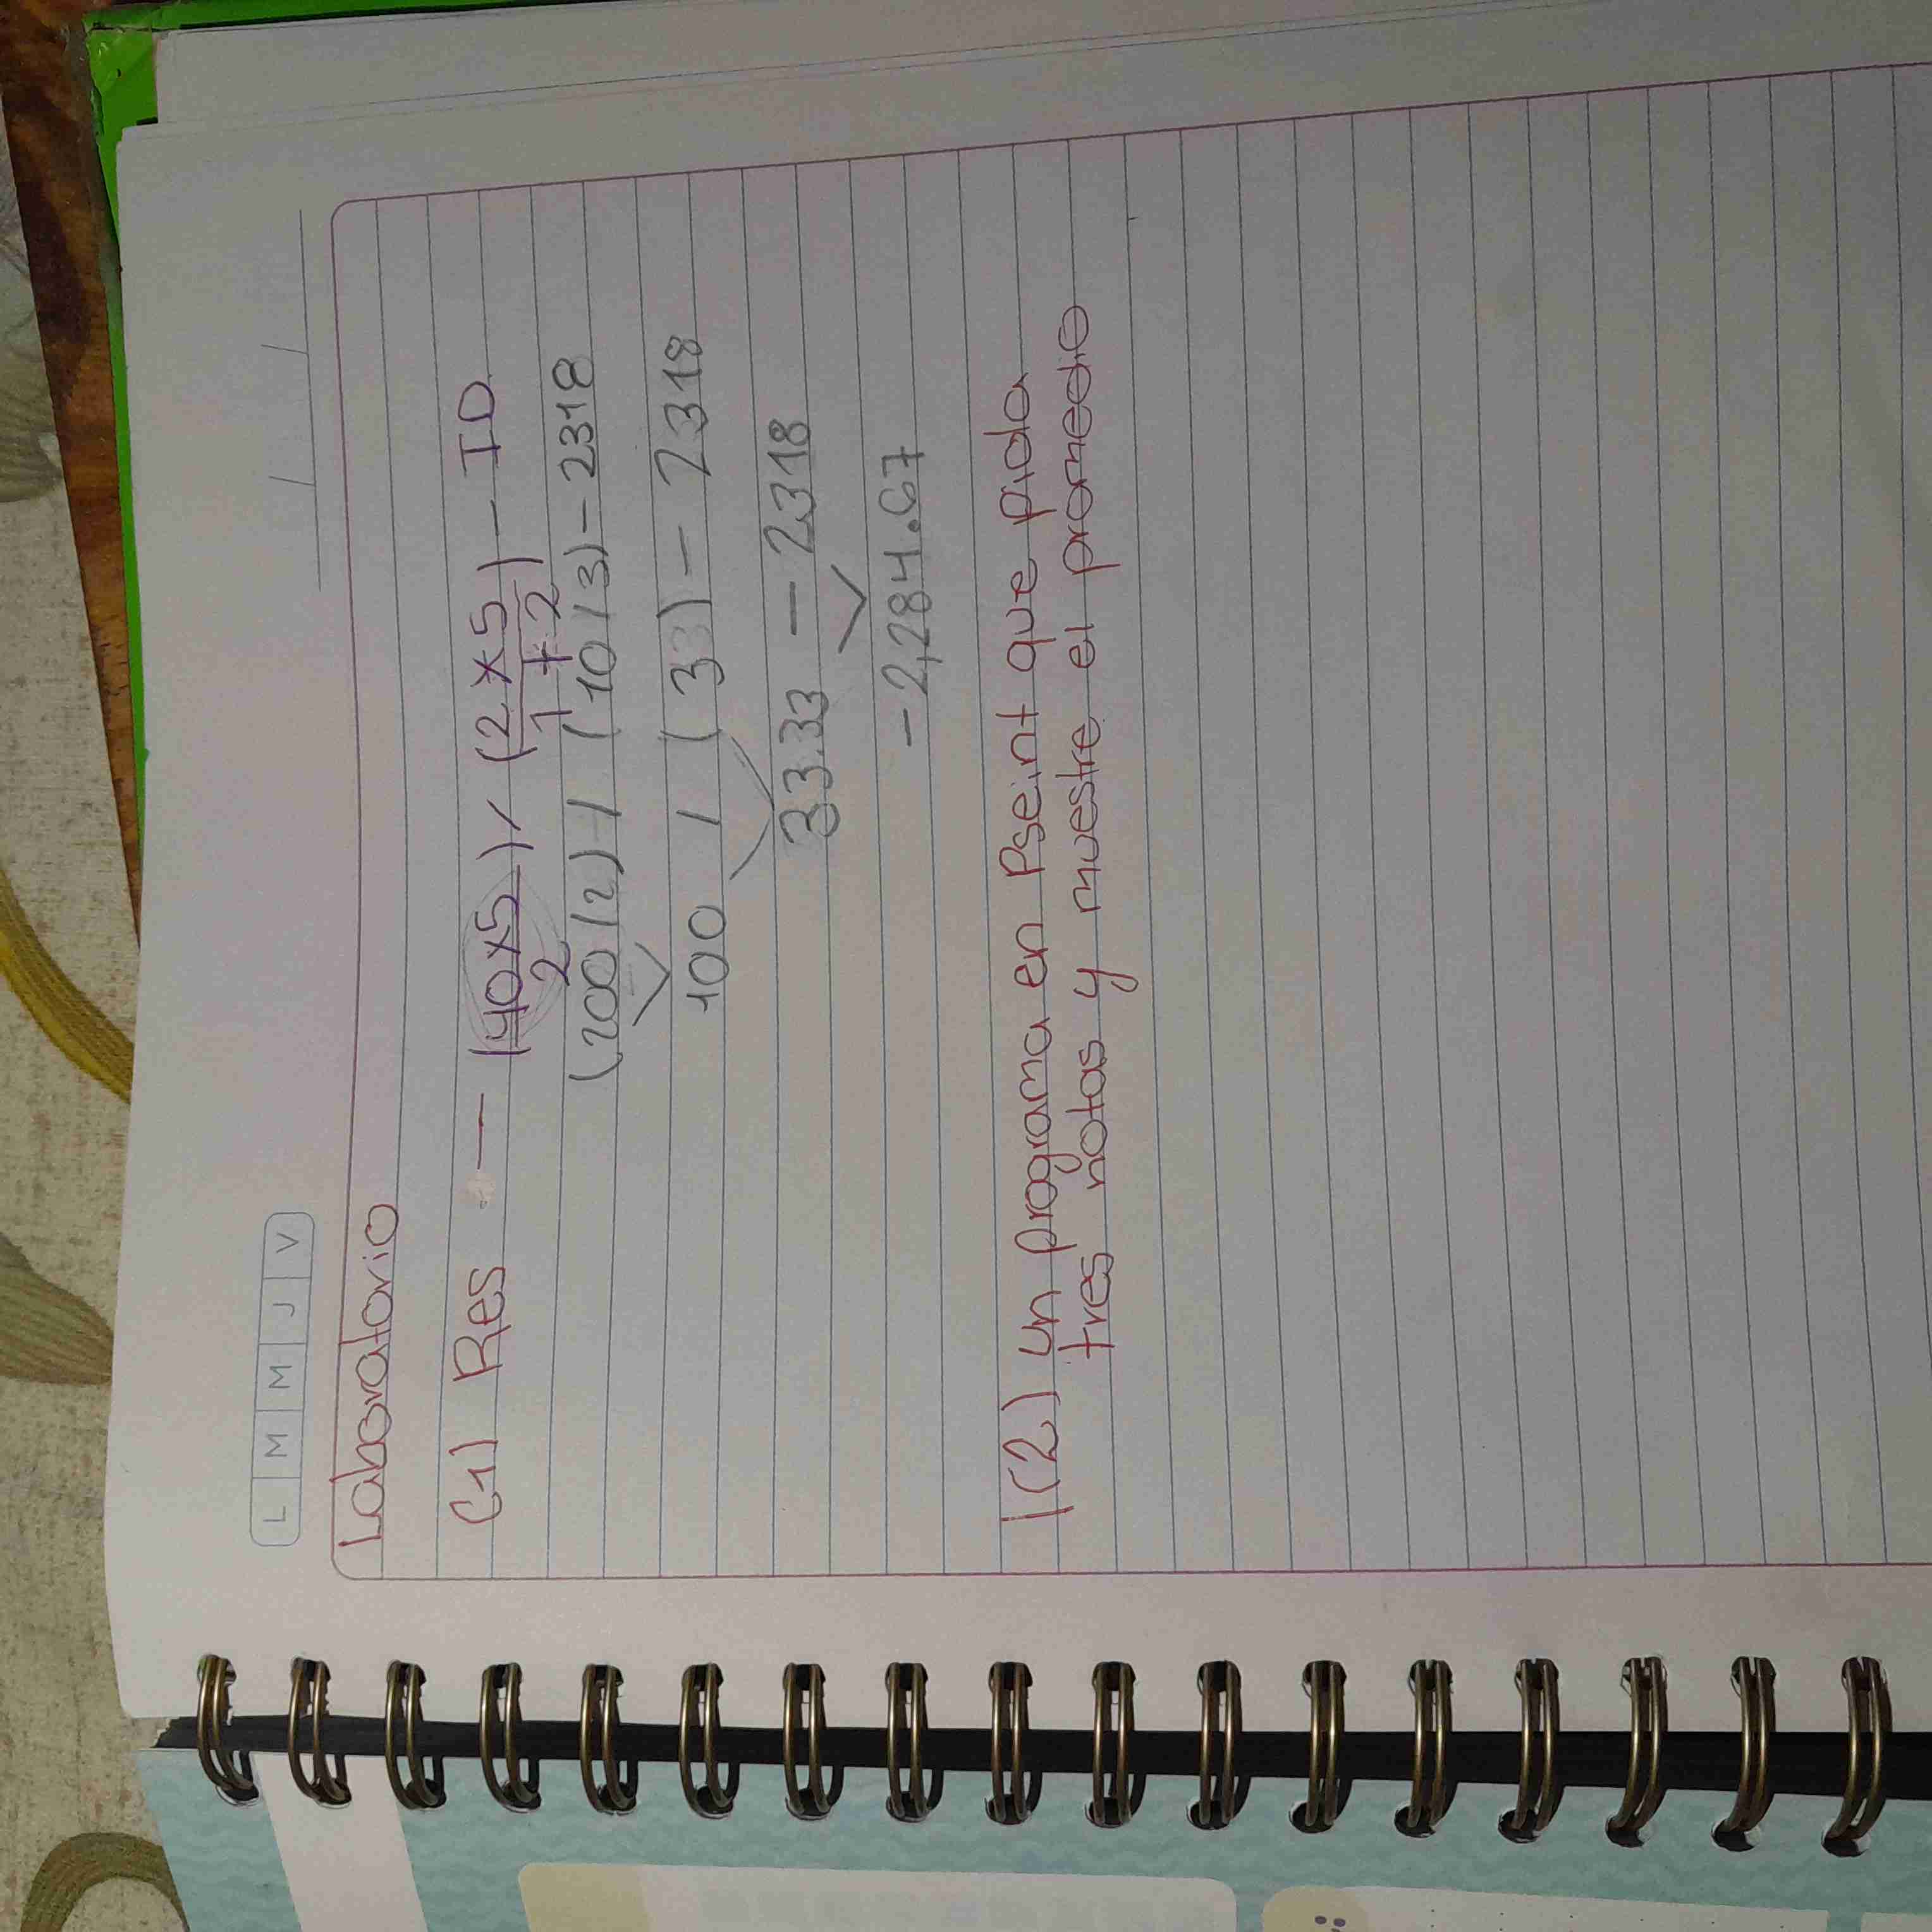 L M M J V
Laboratorio
(1) Res — (40x5)/ (2x5) - ID
2 1+2
(200/2) / (10/3) - 2318
100 / (33) - 2318
33.33 - 2318
-2,284.67
(2) un programa en Pseint que pida
tres notas y muestre el promedio